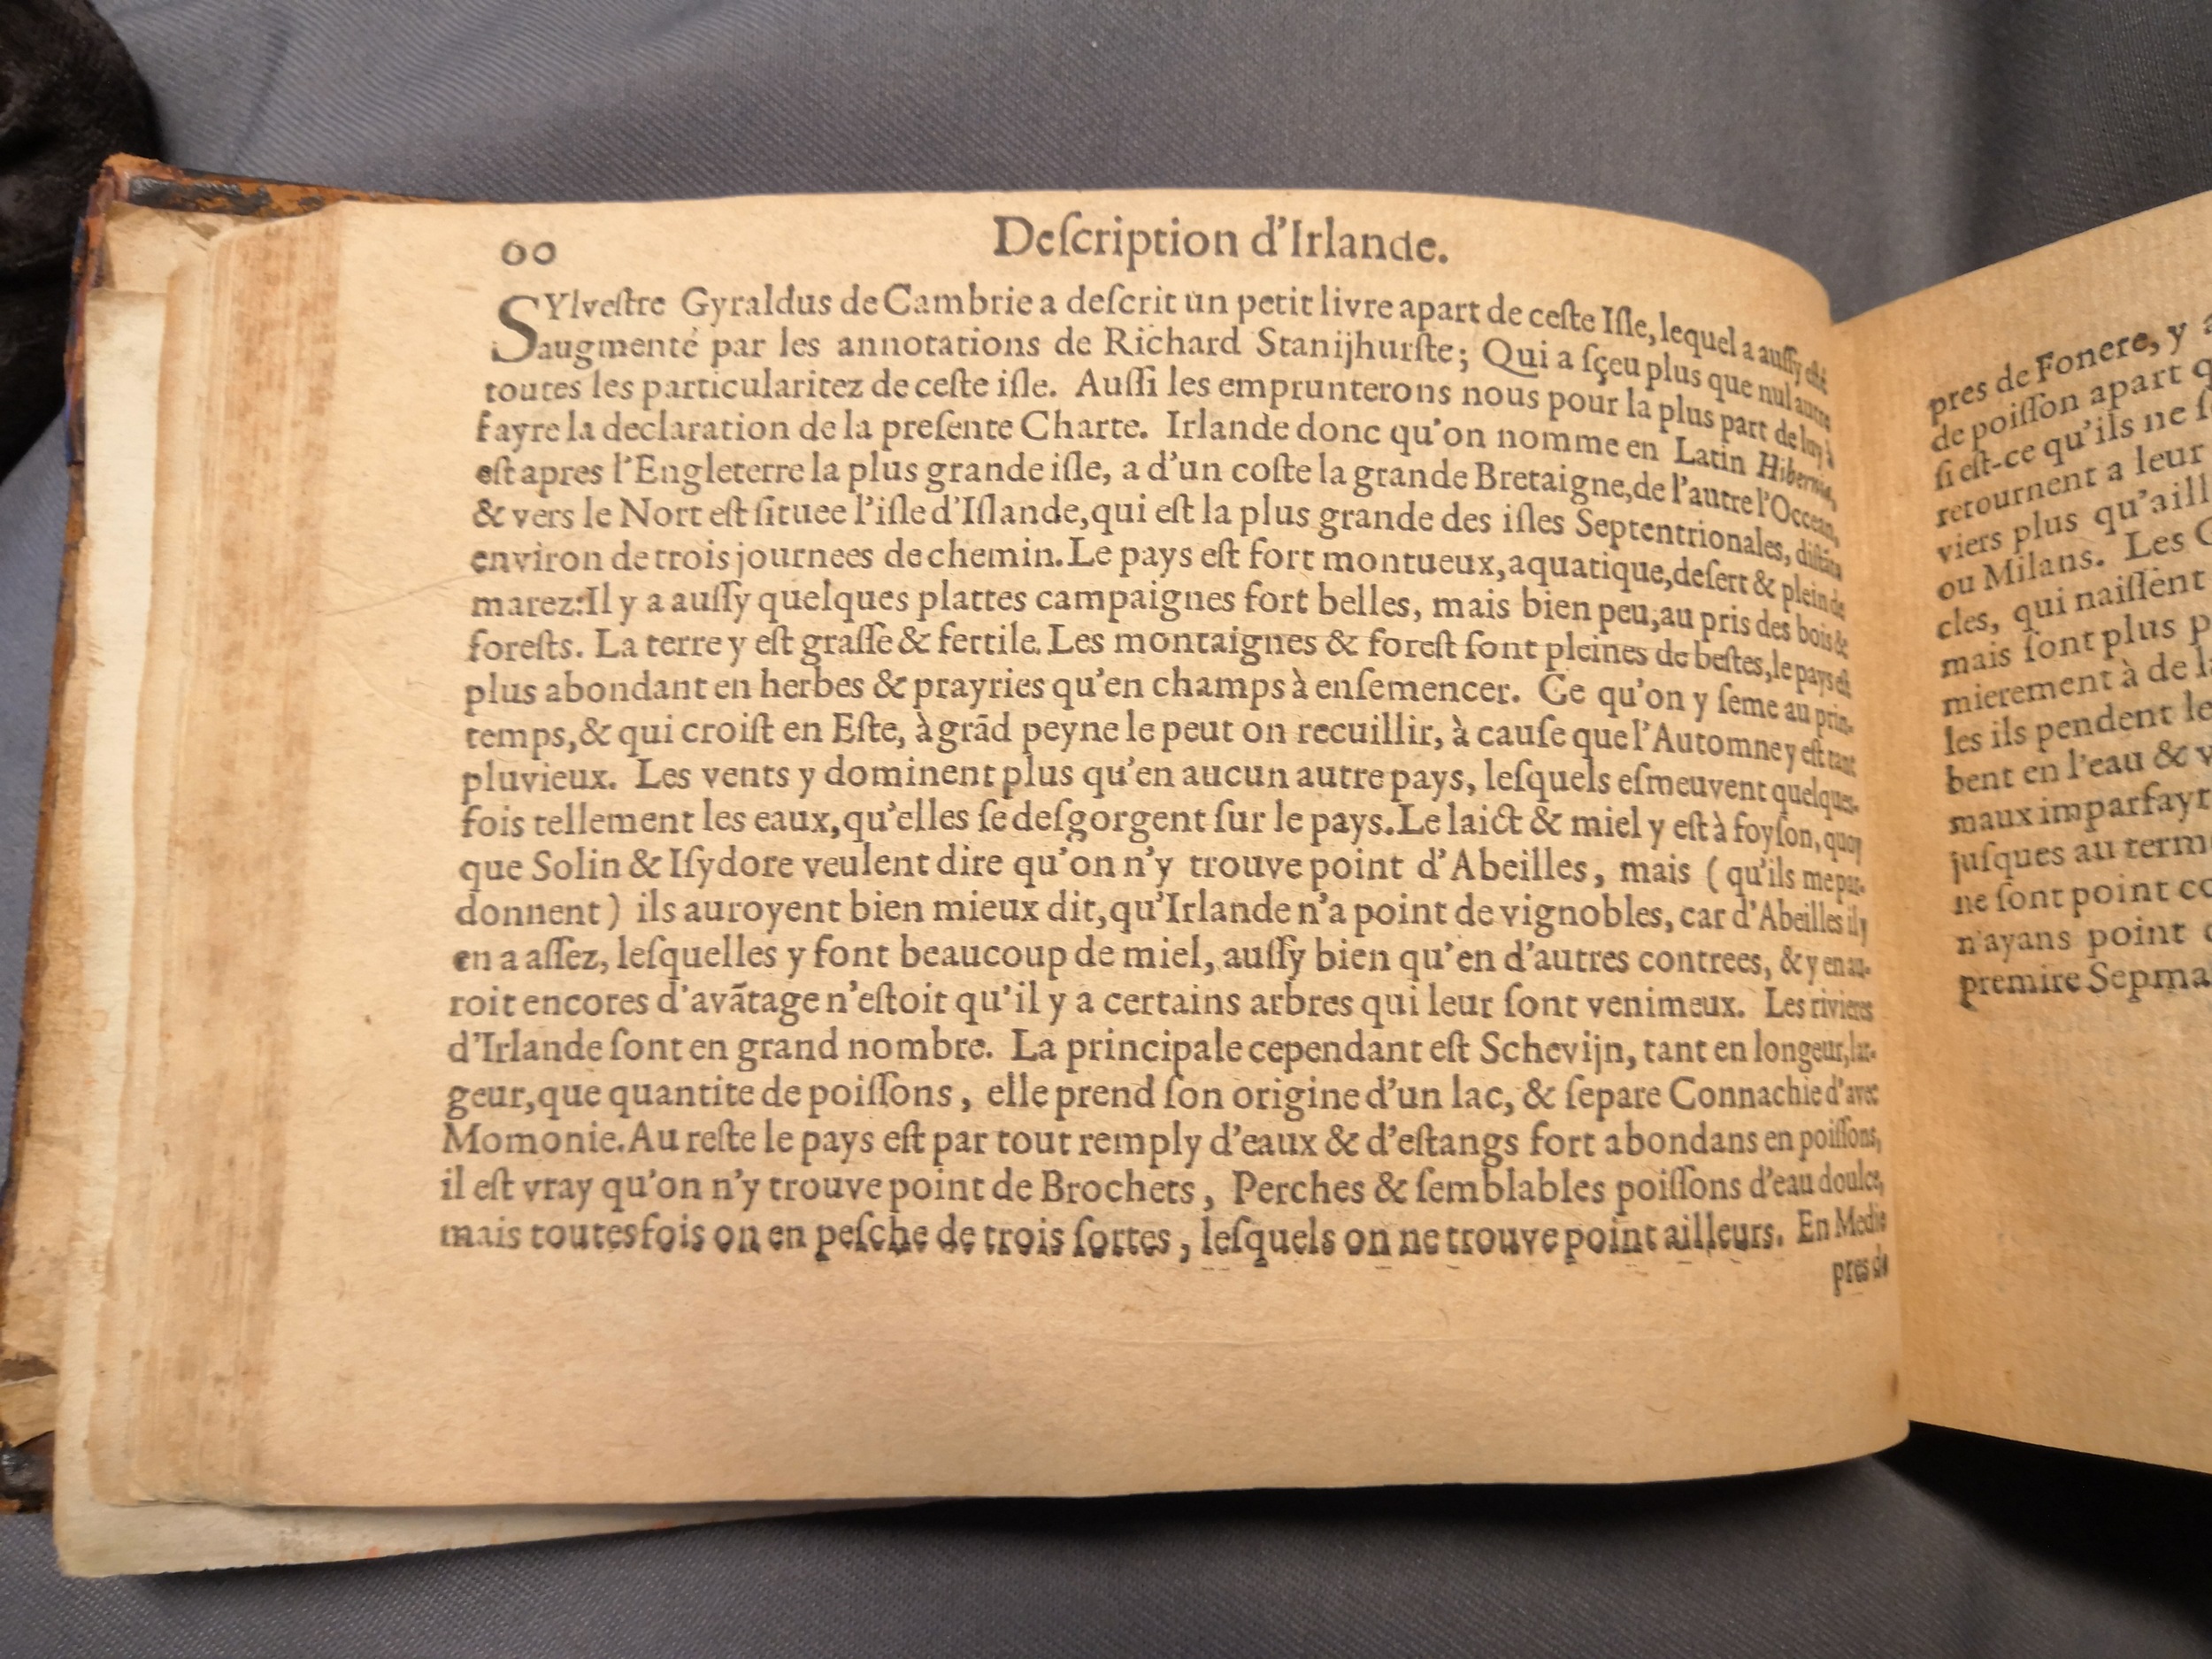 60
Deſcription d'Irlande.
SYlveſtre Gyraldus de Cambrie a deſcrit un petit livre apart de ceſte Iſle, lequel a auſſy eſté
augmenté par les annotations de Richard Stanijhurſte; Qui a ſçeu plus que nul autre
toutes les particularitez de ceſte iſle. Auſſi les emprunterons nous pour la plus part de luy à
fayre la declaration de la preſente Charte. Irlande donc qu'on nomme en Latin Hibernia,
eſt apres l'Engleterre la plus grande iſle, a d'un coſte la grande Bretaigne, de l'autre l'Occean,
& vers le Nort eſt ſituee l'iſle d'Iſlande, qui eſt la plus grande des iſles Septentrionales, diſtāte
environ de trois journees de chemin. Le pays eſt fort montueux, aquatique, deſert & plein de
marez: Il y a auſſy quelques plattes campaignes fort belles, mais bien peu, au pris des bois &
foreſts. La terre y eſt graſſe & fertile. Les montaignes & foreſt ſont pleines de beſtes, le pays eſt
plus abondant en herbes & prayries qu'en champs à enſemencer. Ce qu'on y ſeme au prin-
temps, & qui croiſt en Eſte, à grād peyne le peut on recuillir, à cauſe que l'Automne y eſt tant
pluvieux. Les vents y dominent plus qu'en aucun autre pays, leſquels eſmeuvent quelques-
fois tellement les eaux, qu'elles ſe deſgorgent ſur le pays. Le laict & miel y eſt à foyſon, quoy
que Solin & Iſydore veulent dire qu'on n'y trouve point d'Abeilles, mais ( qu'ils me par-
donnent ) ils auroyent bien mieux dit, qu'Irlande n'a point de vignobles, car d'Abeilles il y
en a aſſez, leſquelles y font beaucoup de miel, auſſy bien qu'en d'autres contrees, & y en au-
roit encores d'avātage n'eſtoit qu'il y a certains arbres qui leur ſont venimeux. Les rivieres
d'Irlande ſont en grand nombre. La principale cependant eſt Schevijn, tant en longeur, lar-
geur, que quantite de poiſſons, elle prend ſon origine d'un lac, & ſepare Connachie d'avec
Momonie. Au reſte le pays eſt par tout remply d'eaux & d'eſtangs fort abondans en poiſſons,
il eſt vray qu'on n'y trouve point de Brochets, Perches & ſemblables poiſſons d'eau doulce,
mais toutesfois on en peſche de trois ſortes, leſquels on ne trouve point ailleurs. En Medie
pres de
pres de Fonere, y
de poiſſon apart
ſi eſt-ce qu'ils ne
retournent a leur
viers plus qu'aill
ou Milans. Les
cles, qui naiſſent
mais ſont plus
mierement à de
les ils pendent
bent en l'eau &
maux imparfayt
juſques au term
ne ſont point
n'ayans point
premire Sepma